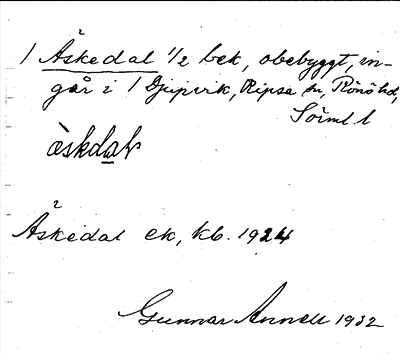 1 Åskedal 1/2 bek, obebyggt, in-
går i 1 Djupvik, Ripsa sn, Rönö hd,
Sörml. l
àskdaɫv
Åskedal ek, kb. 1924
Gunnar Annell 1932